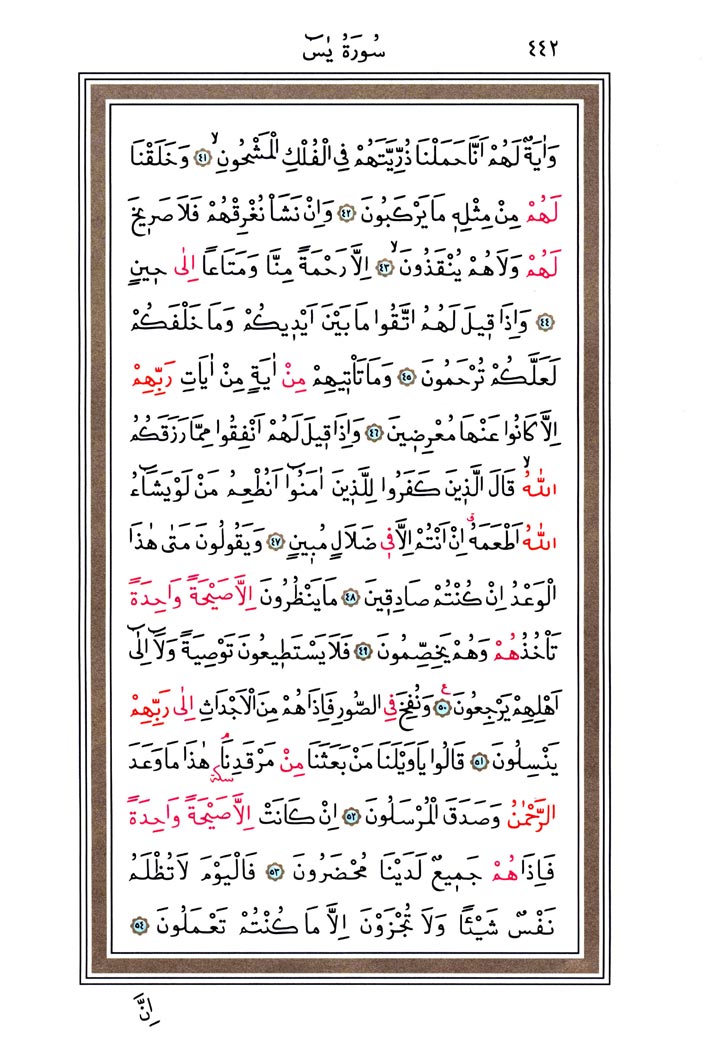 ٤٤٢
سُورَةُ يٰسٓ
وَاٰيَةٌ لَهُمْ اَنَّا حَمَلْنَا ذُرِّيَّتَهُمْ فِي الْفُلْكِ الْمَشْحُونِۙ ﴿٤١﴾ وَخَلَقْنَا
لَهُمْ مِنْ مِثْلِه۪ مَا يَرْكَبُونَ ﴿٤٢﴾ وَاِنْ نَشَأْ نُغْرِقْهُمْ فَلَا صَر۪يخَ
لَهُمْ وَلَا هُمْ يُنْقَذُونَۙ ﴿٤٣﴾ اِلَّا رَحْمَةً مِنَّا وَمَتَاعًا اِلٰى ح۪ينٍ
﴿٤٤﴾ وَاِذَا ق۪يلَ لَهُمُ اتَّقُوا مَا بَيْنَ اَيْد۪يكُمْ وَمَا خَلْفَكُمْ
لَعَلَّكُمْ تُرْحَمُونَ ﴿٤٥﴾ وَمَا تَأْت۪يهِمْ مِنْ اٰيَةٍ مِنْ اٰيَاتِ رَبِّهِمْ
اِلَّا كَانُوا عَنْهَا مُعْرِض۪ينَ ﴿٤٦﴾ وَاِذَا ق۪يلَ لَهُمْ اَنْفِقُوا مِمَّا رَزَقَكُمُ
اللّٰهُۙ قَالَ الَّذ۪ينَ كَفَرُوا لِلَّذ۪ينَ اٰمَنُٓوا اَنُطْعِمُ مَنْ لَوْ يَشَٓاءُ
اللّٰهُ اَطْعَمَهُۗ اِنْ اَنْتُمْ اِلَّا ف۪ي ضَلَالٍ مُب۪ينٍ ﴿٤٧﴾ وَيَقُولُونَ مَتٰى هٰذَا
الْوَعْدُ اِنْ كُنْتُمْ صَادِق۪ينَ ﴿٤٨﴾ مَا يَنْظُرُونَ اِلَّا صَيْحَةً وَاحِدَةً
تَأْخُذُهُمْ وَهُمْ يَخِصِّمُونَ ﴿٤٩﴾ فَلَا يَسْتَط۪يعُونَ تَوْصِيَةً وَلَٓا اِلٰٓى
اَهْلِهِمْ يَرْجِعُونَ۟ ﴿٥٠﴾ وَنُفِخَ فِي الصُّورِ فَاِذَا هُمْ مِنَ الْاَجْدَاثِ اِلٰى رَبِّهِمْ
يَنْسِلُونَ ﴿٥١﴾ قَالُوا يَا وَيْلَنَا مَنْ بَعَثَنَا مِنْ مَرْقَدِنَاۢ سكتة هٰذَا مَا وَعَدَ
الرَّحْمٰنُ وَصَدَقَ الْمُرْسَلُونَ ﴿٥٢﴾ اِنْ كَانَتْ اِلَّا صَيْحَةً وَاحِدَةً
فَاِذَا هُمْ جَم۪يعٌ لَدَيْنَا مُحْضَرُونَ ﴿٥٣﴾ فَالْيَوْمَ لَا تُظْلَمُ
نَفْسٌ شَيْـًٔا وَلَا تُجْزَوْنَ اِلَّا مَا كُنْتُمْ تَعْمَلُونَ ﴿٥٤﴾
اِنَّ